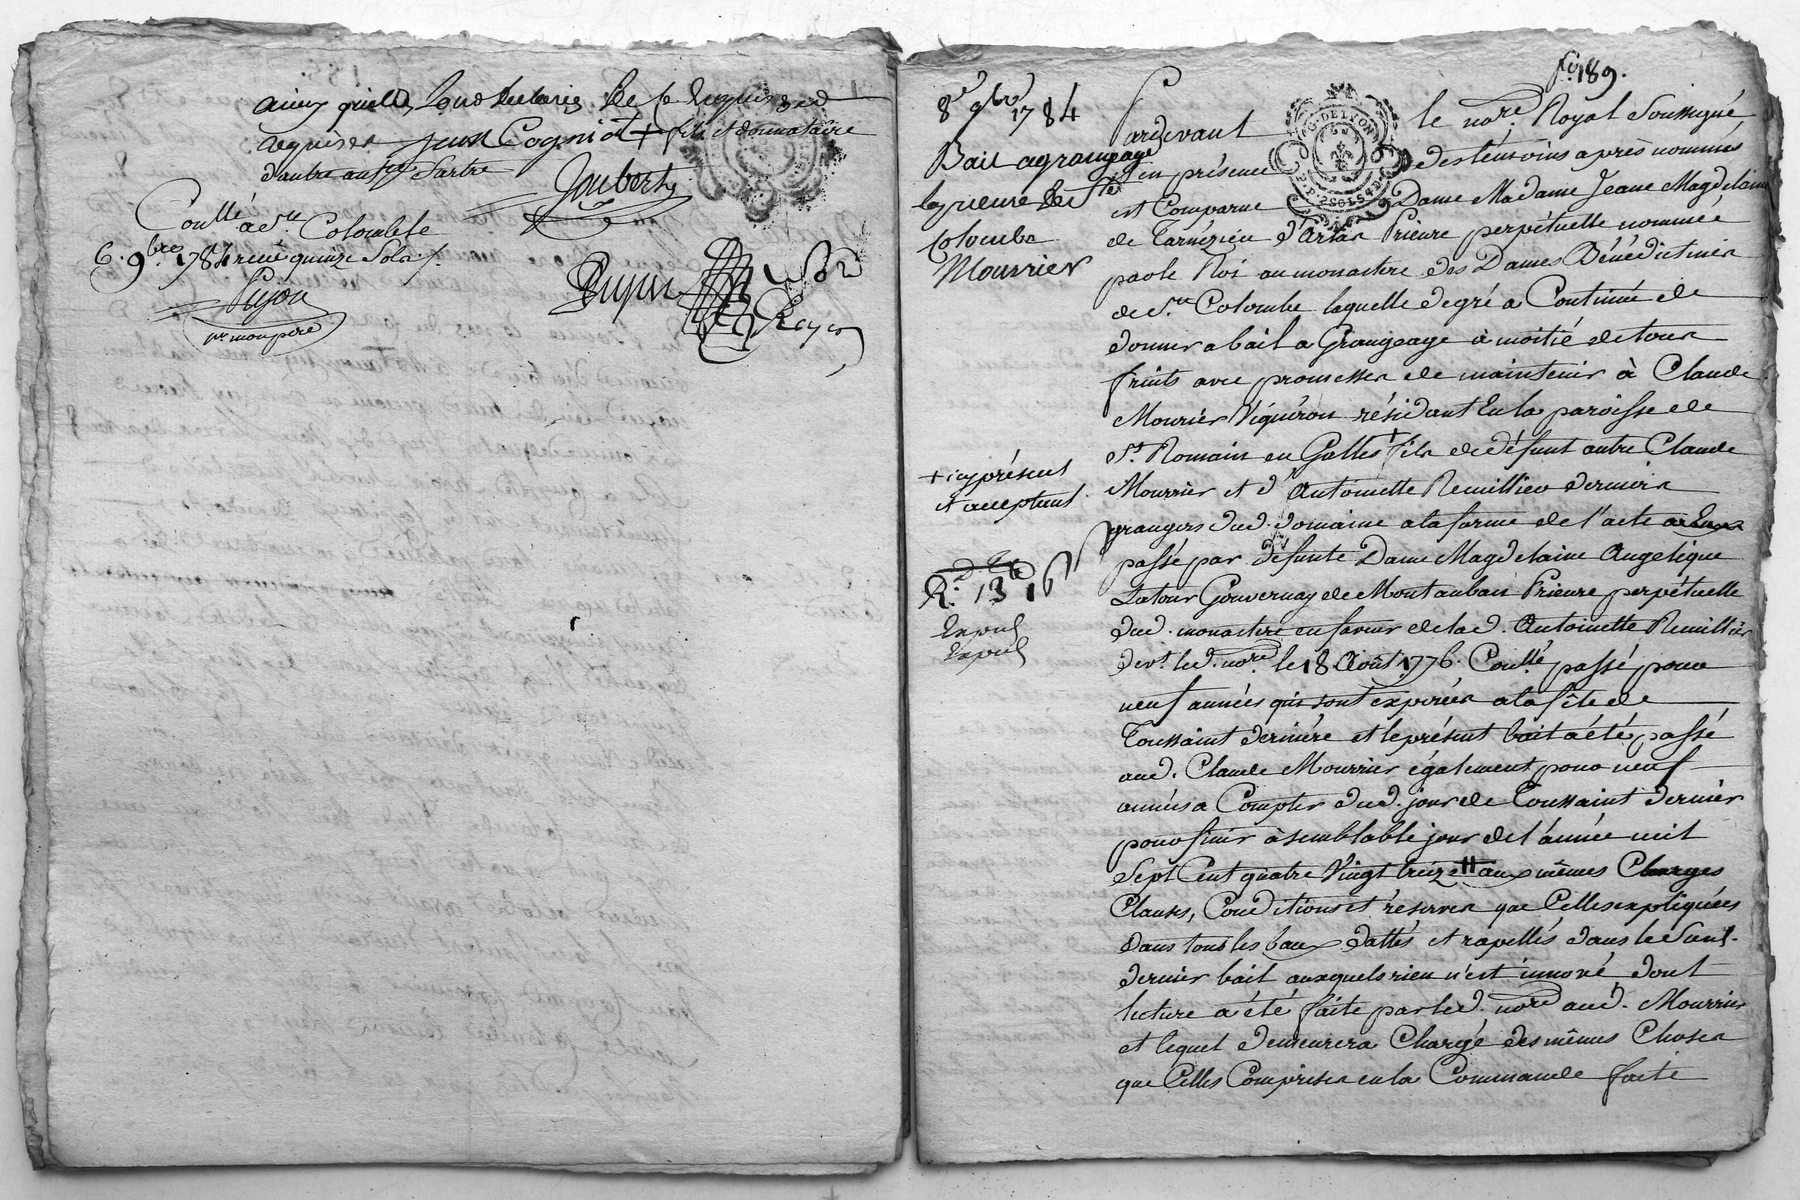 ainsy qu'elles l'ont declaré de ce enquis et
requises Jean Cognat + fils et donnataire
d'autre antne Sartre
Joubert
Conllé à Ste Colombe le
6. 9bre 1784 reçu quinze sols
Pijon
pr. mon père
Dupui
fo. 189.
8e 9bre 1784
Bail a grangeage
la prieure de Ste
Colombe
Mourrier
+ icy présent
et acceptant
Expédié
Expédié
G. DE LYON
Pardevant le nore. Royal Soussigné
et en présence des témoins après nommés
est Comparue Dame Madame Jeanne Magdelaine
de Tarnezieu d'Arlan Prieure perpétuelle nommée
par le Roi au monastere des Dames Bénédictines
de Ste Colombe laquelle de gré a Continué de
donner a bail a Grangeage à moitié de tous
fruits avec promesses de maintenir à Claude
Mourier Vigneron résidant En la paroisse de
St. Romain en Galles + fils de défunt autre Claude
Mourrier et d'Antoinette Remillieu derniers
grangers dud. domaine a la forme de l'acte
passé par défunte Dame Magdelaine Angelique
Latour Gouvernay de Montauban Prieure perpétuelle
dud. monastere en faveur de lad. Antoinette Remillieu
devt. led. nore le 18. Août 1776. Conllé passé pour
neuf années qui sont expirées a la fête de
Toussaint derniere et le présent bail a été passé
aud. Claude Mourrier également pour neuf
années a Compter dud. jour de Toussaint dernier
pour finir à semblable jour de l'année mil
Sept Cent quatre Vingt treize aux mêmes Charges
Clauses, Conditions et réserves que Celles expliquées
dans tous les baux dattés et rapellés dans le Susd.
dernier bail auxquels rien n'est innové, dont
lecture a été faite par led. nore aud. Mourrier
et lequel demeurera Chargé des mêmes Choses
que Celles Comprises en la Commande faite